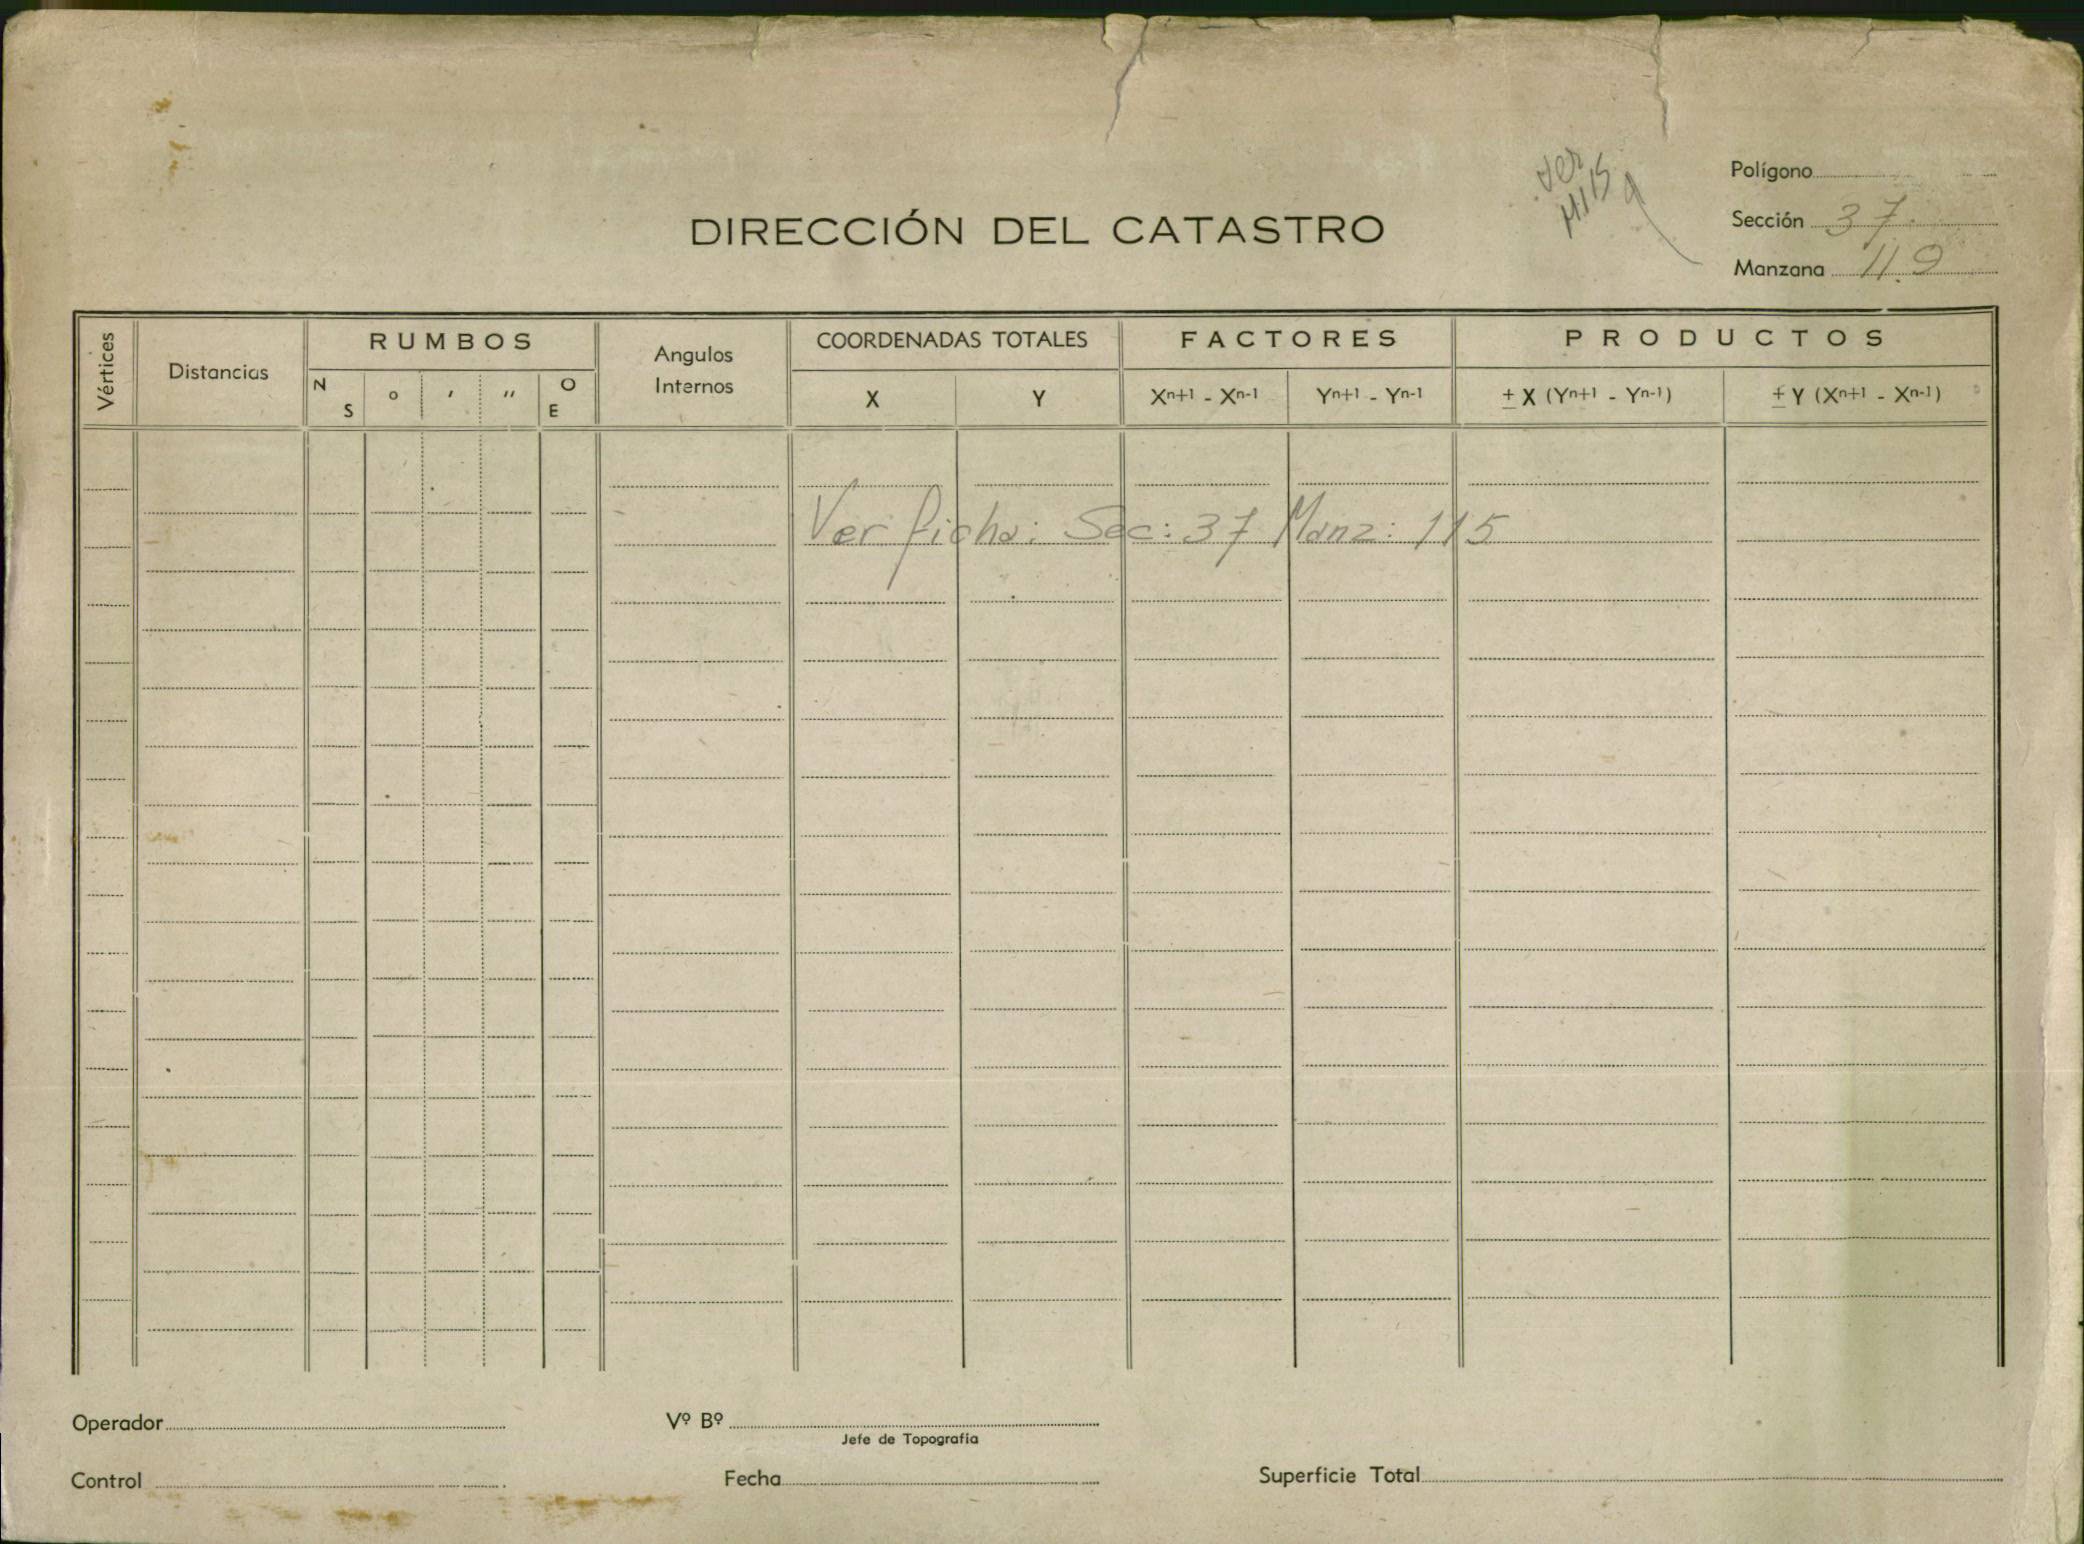 ver
M115
Polígono
DIRECCIÓN DEL CATASTRO
Sección 37.
Manzana 119
Vértices
Distancias
RUMBOS
N S
o
'
"
O E
Angulos
Internos
COORDENADAS TOTALES
X
Y
FACTORES
Xn+1 - Xn-1
Yn+1 - Yn-1
PRODUCTOS
± X (Yn+1 - Yn-1)
± Y (Xn+1 - Xn-1)
Ver ficha: Sec: 37 Manz: 115
Operador
Vº Bº
Jefe de Topografía
Control
Fecha
Superficie Total